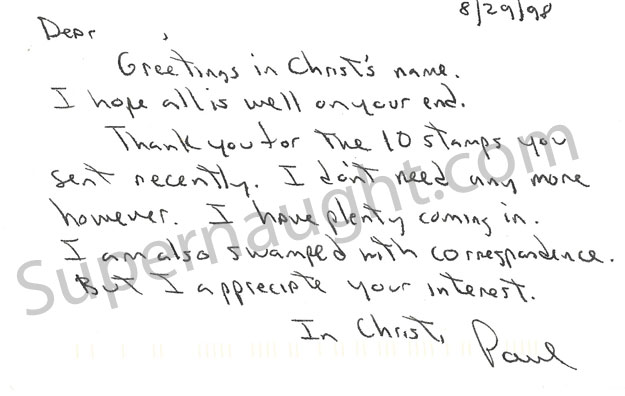 8/29/98
Dear ,
Greetings in Christ's name.
I hope all is well on your end.
Thank you for the 10 stamps you
sent recently. I don't need any more
however. I have plenty coming in.
I am also swamped with correspondence.
But I appreciate your interest.
In Christ,
Paul
Supernaught.com